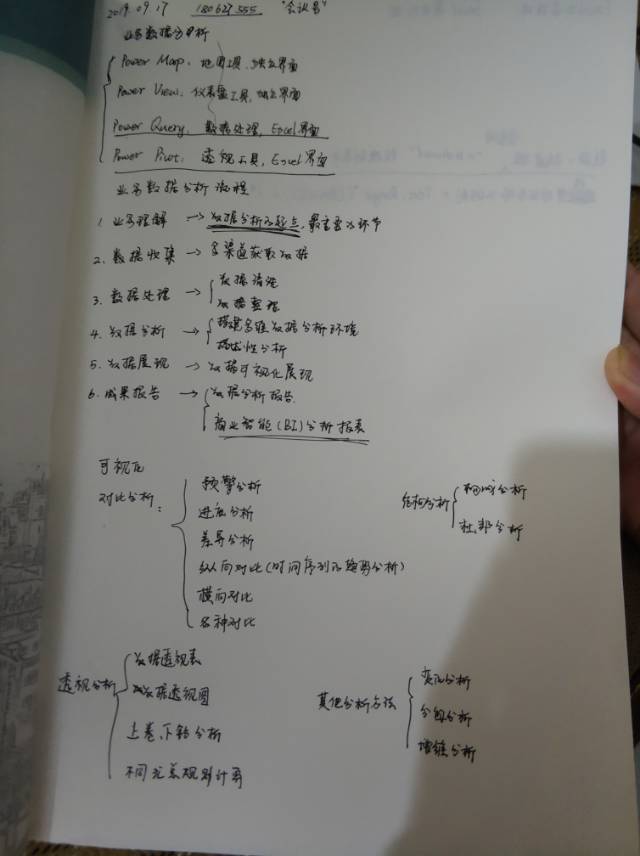 2019.09.17 180627555 "会议号"
业务数据分析
Power Map: 地图工具, 独立界面
Power View: 仪表盘工具, 独立界面
Power Query: 数据处理, Excel界面
Power Pivot: 透视工具, Excel界面
业务数据分析流程
1. 业务理解 → 数据分析的起点, 最重要的环节
2. 数据收集 → 多渠道获取数据
3. 数据处理 → 数据清洗
数据整理
4. 数据分析 → 搭建多维数据分析环境
描述性分析
5. 数据展现 → 数据可视化展现
6. 成果报告 → 数据分析报告
商业智能(BI)分析报表
可视化
对比分析:
预警分析
进度分析
差异分析
纵向对比(时间序列的趋势分析)
横向对比
各种对比
结构分析
构成分析
杜邦分析
透视分析
数据透视表
数据透视图
上卷、下钻分析
不同 规则计算
其他分析方法
分析
分组分析
分析